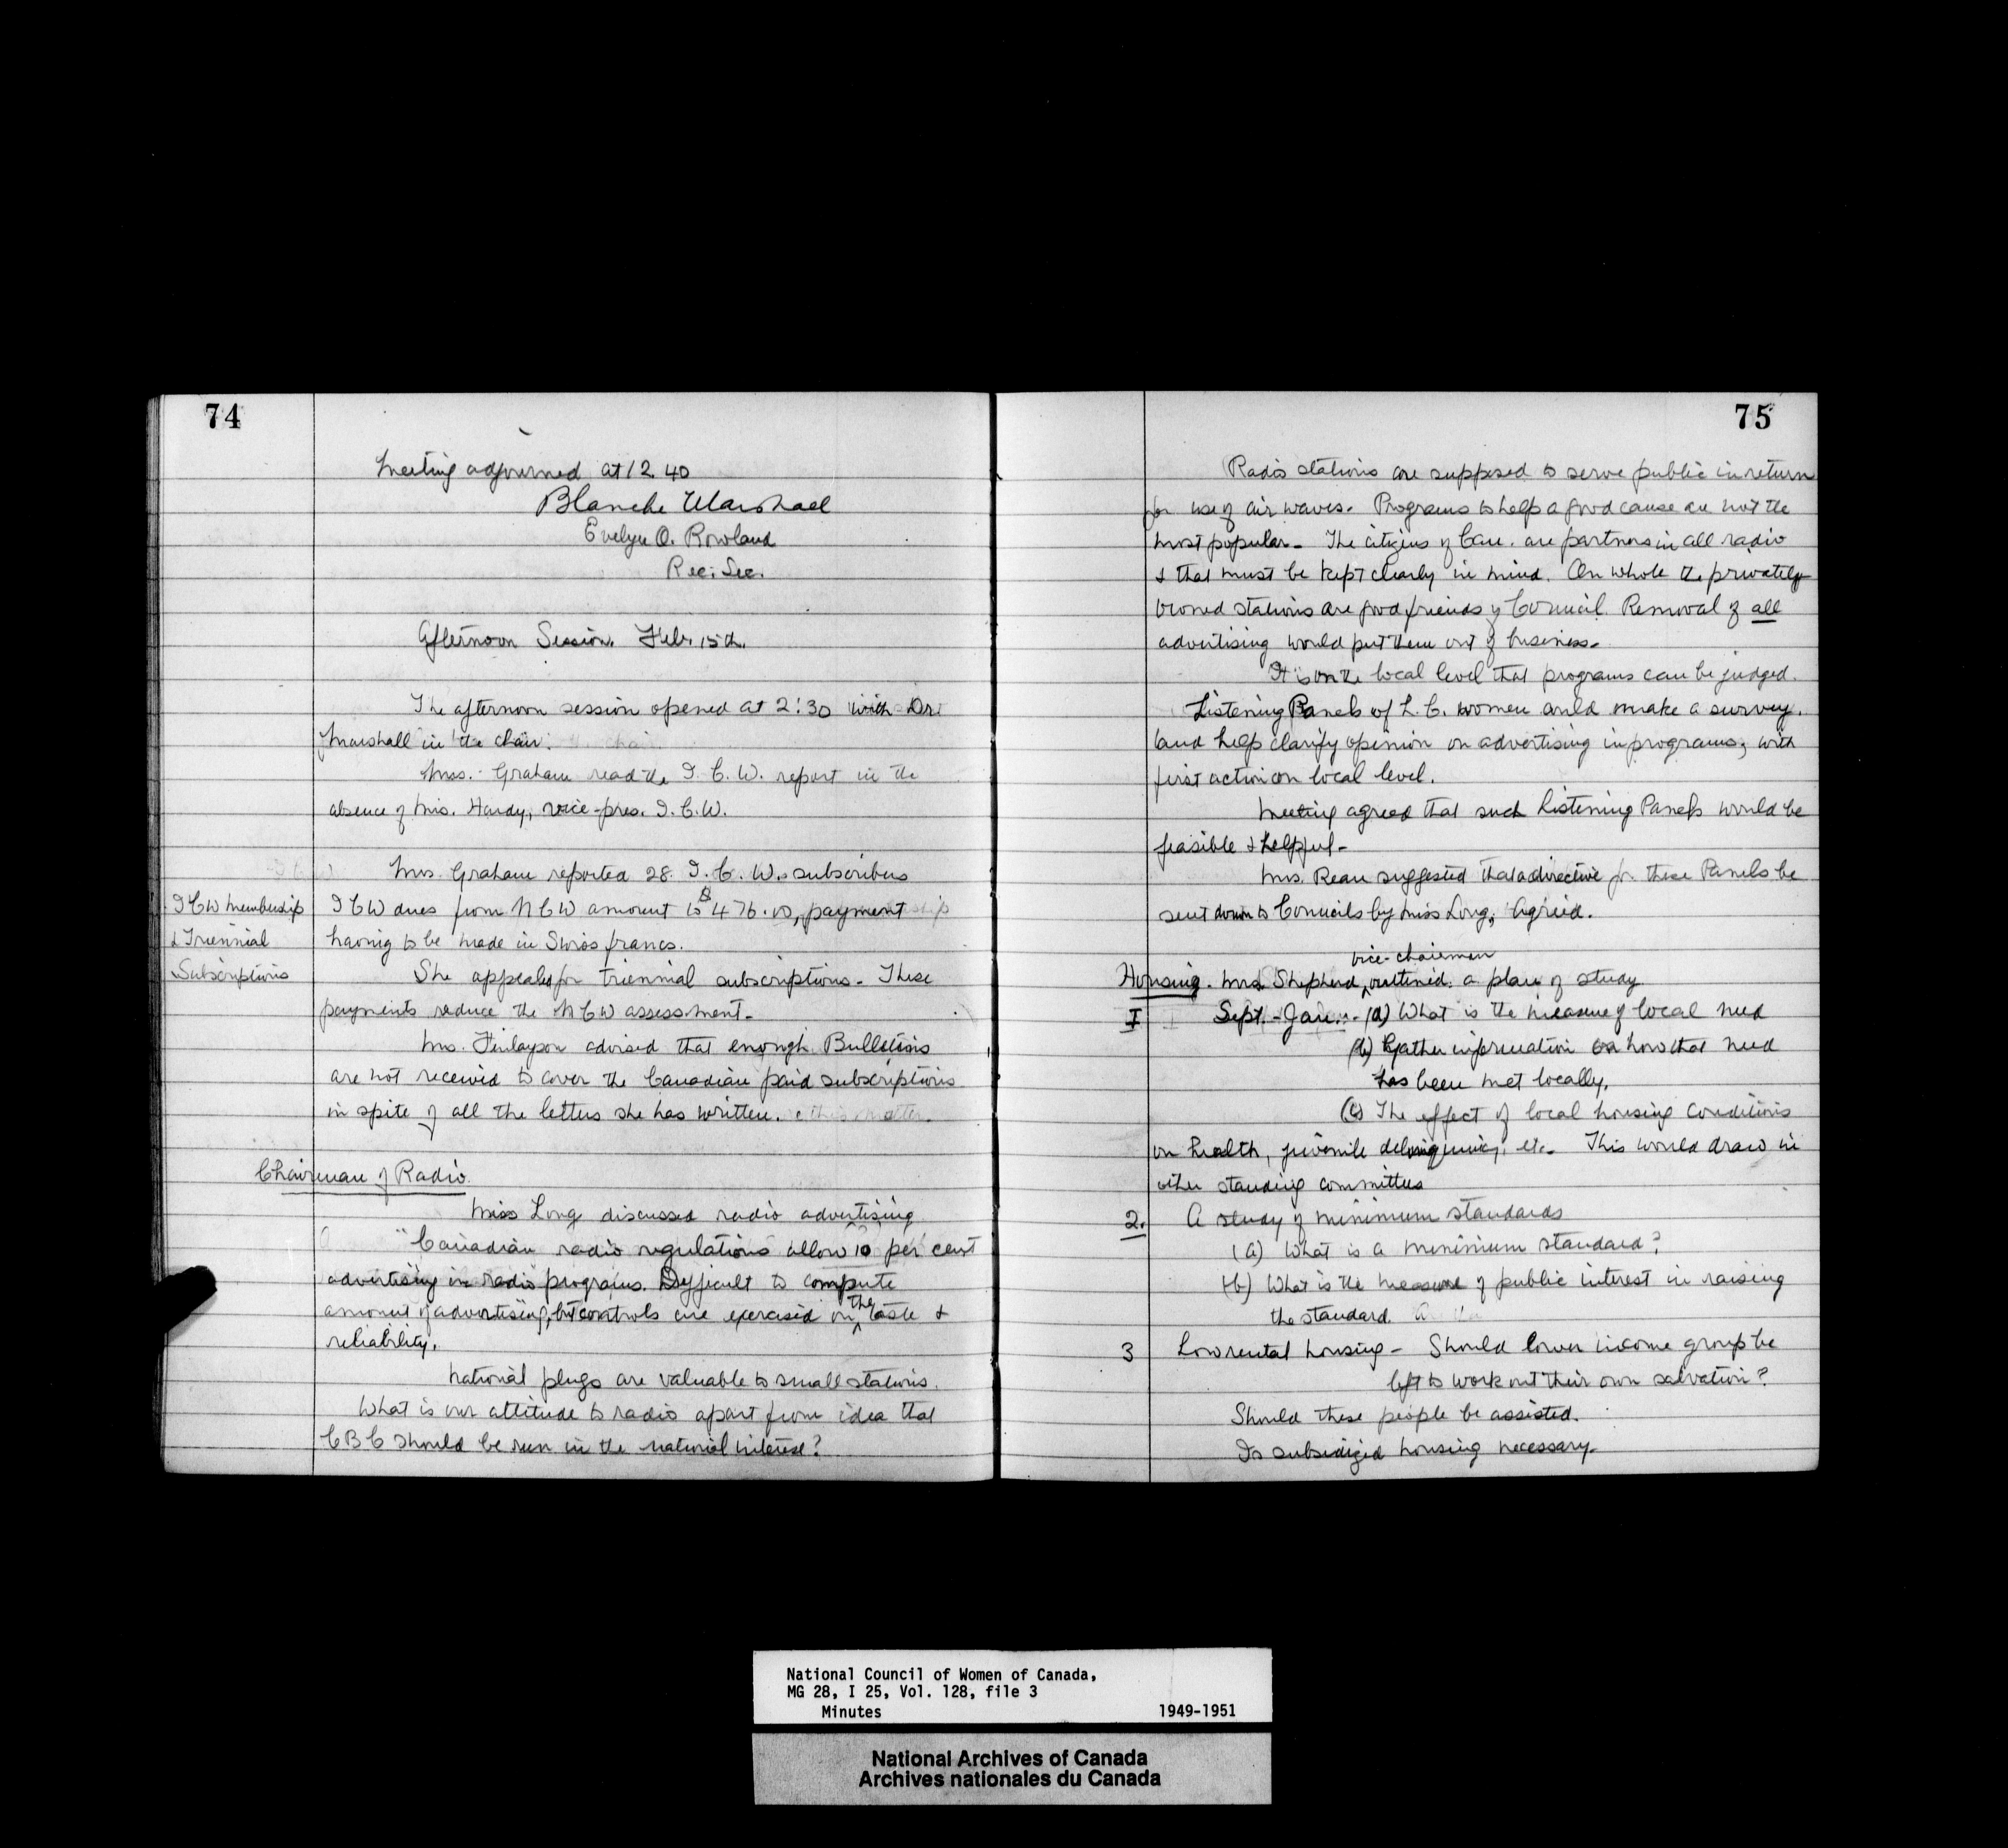 74
Meeting adjourned at 12.40
Blanche Marshall
Evelyn O. Rowland
Rec. Sec.
Afternoon Session. Feb. 15th.
The afternoon session opened at 2:30 with Dr.
Marshall in the chair.
Mrs. Graham read the I.C.W. report in the
absence of Mrs. Hardy, vice-pres. I.C.W.
Mrs. Graham reported 28 I.C.W. subscribers
I C W membership
& Triennial
Subscriptions
I C W dues from N C W amount to $476.00, payment
having to be made in Swiss francs.
She appeals for triennial subscriptions. These
payments reduce the N C W assessment.
Mrs. Finlayson advised that enough Bulletins
are not received to cover the Canadian paid subscriptions
in spite of all the letters she has written.
Chairman of Radio
Miss Long discussed radio advertising
"Canadian radio regulations allow 10 per cent
advertising in radio programs. Difficult to compute
amount of advertising, but controls are exercised on the taste &
reliability.
National plugs are valuable to small stations.
What is our attitude to radio apart from idea that
C B C should be run in the national interest?
75
Radio stations are supposed to serve public in return
for use of air waves. Programs to help a good cause are not the
most popular. The citizens of Can. are partners in all radio
& that must be kept clearly in mind. On whole the privately
owned stations are good friends of Council. Removal of all
advertising would put them out of business.
It is on the local level that programs can be judged.
Listening Panels of L.C. women could make a survey,
and help clarify opinion on advertising in programs, with
first action on local level.
Meeting agreed that such Listening Panels would be
feasible & helpful.
Mrs. Ream suggested that a directive for these Panels be
sent down to Councils by Miss Long. Agreed.
vice-chairman
Housing. Mrs. Shepherd, outlined a plan of study
I Sept. - Jan. - (a) What is the measure of local need
(b) Gather information on how that need
has been met locally.
(c) The effect of local housing conditions
on health, juvenile delinquency, etc. This would draw in
other standing committees
2. A study of minimum standards
(a) What is a minimum standard?
(b) What is the measure of public interest in raising
the standard.
3 Low rental housing - Should lower income group be
left to work out their own salvation?
Should these people be assisted.
Is subsidized housing necessary.
National Council of Women of Canada,
MG 28, I 25, Vol. 128, file 3
Minutes 1949-1951
National Archives of Canada
Archives nationales du Canada